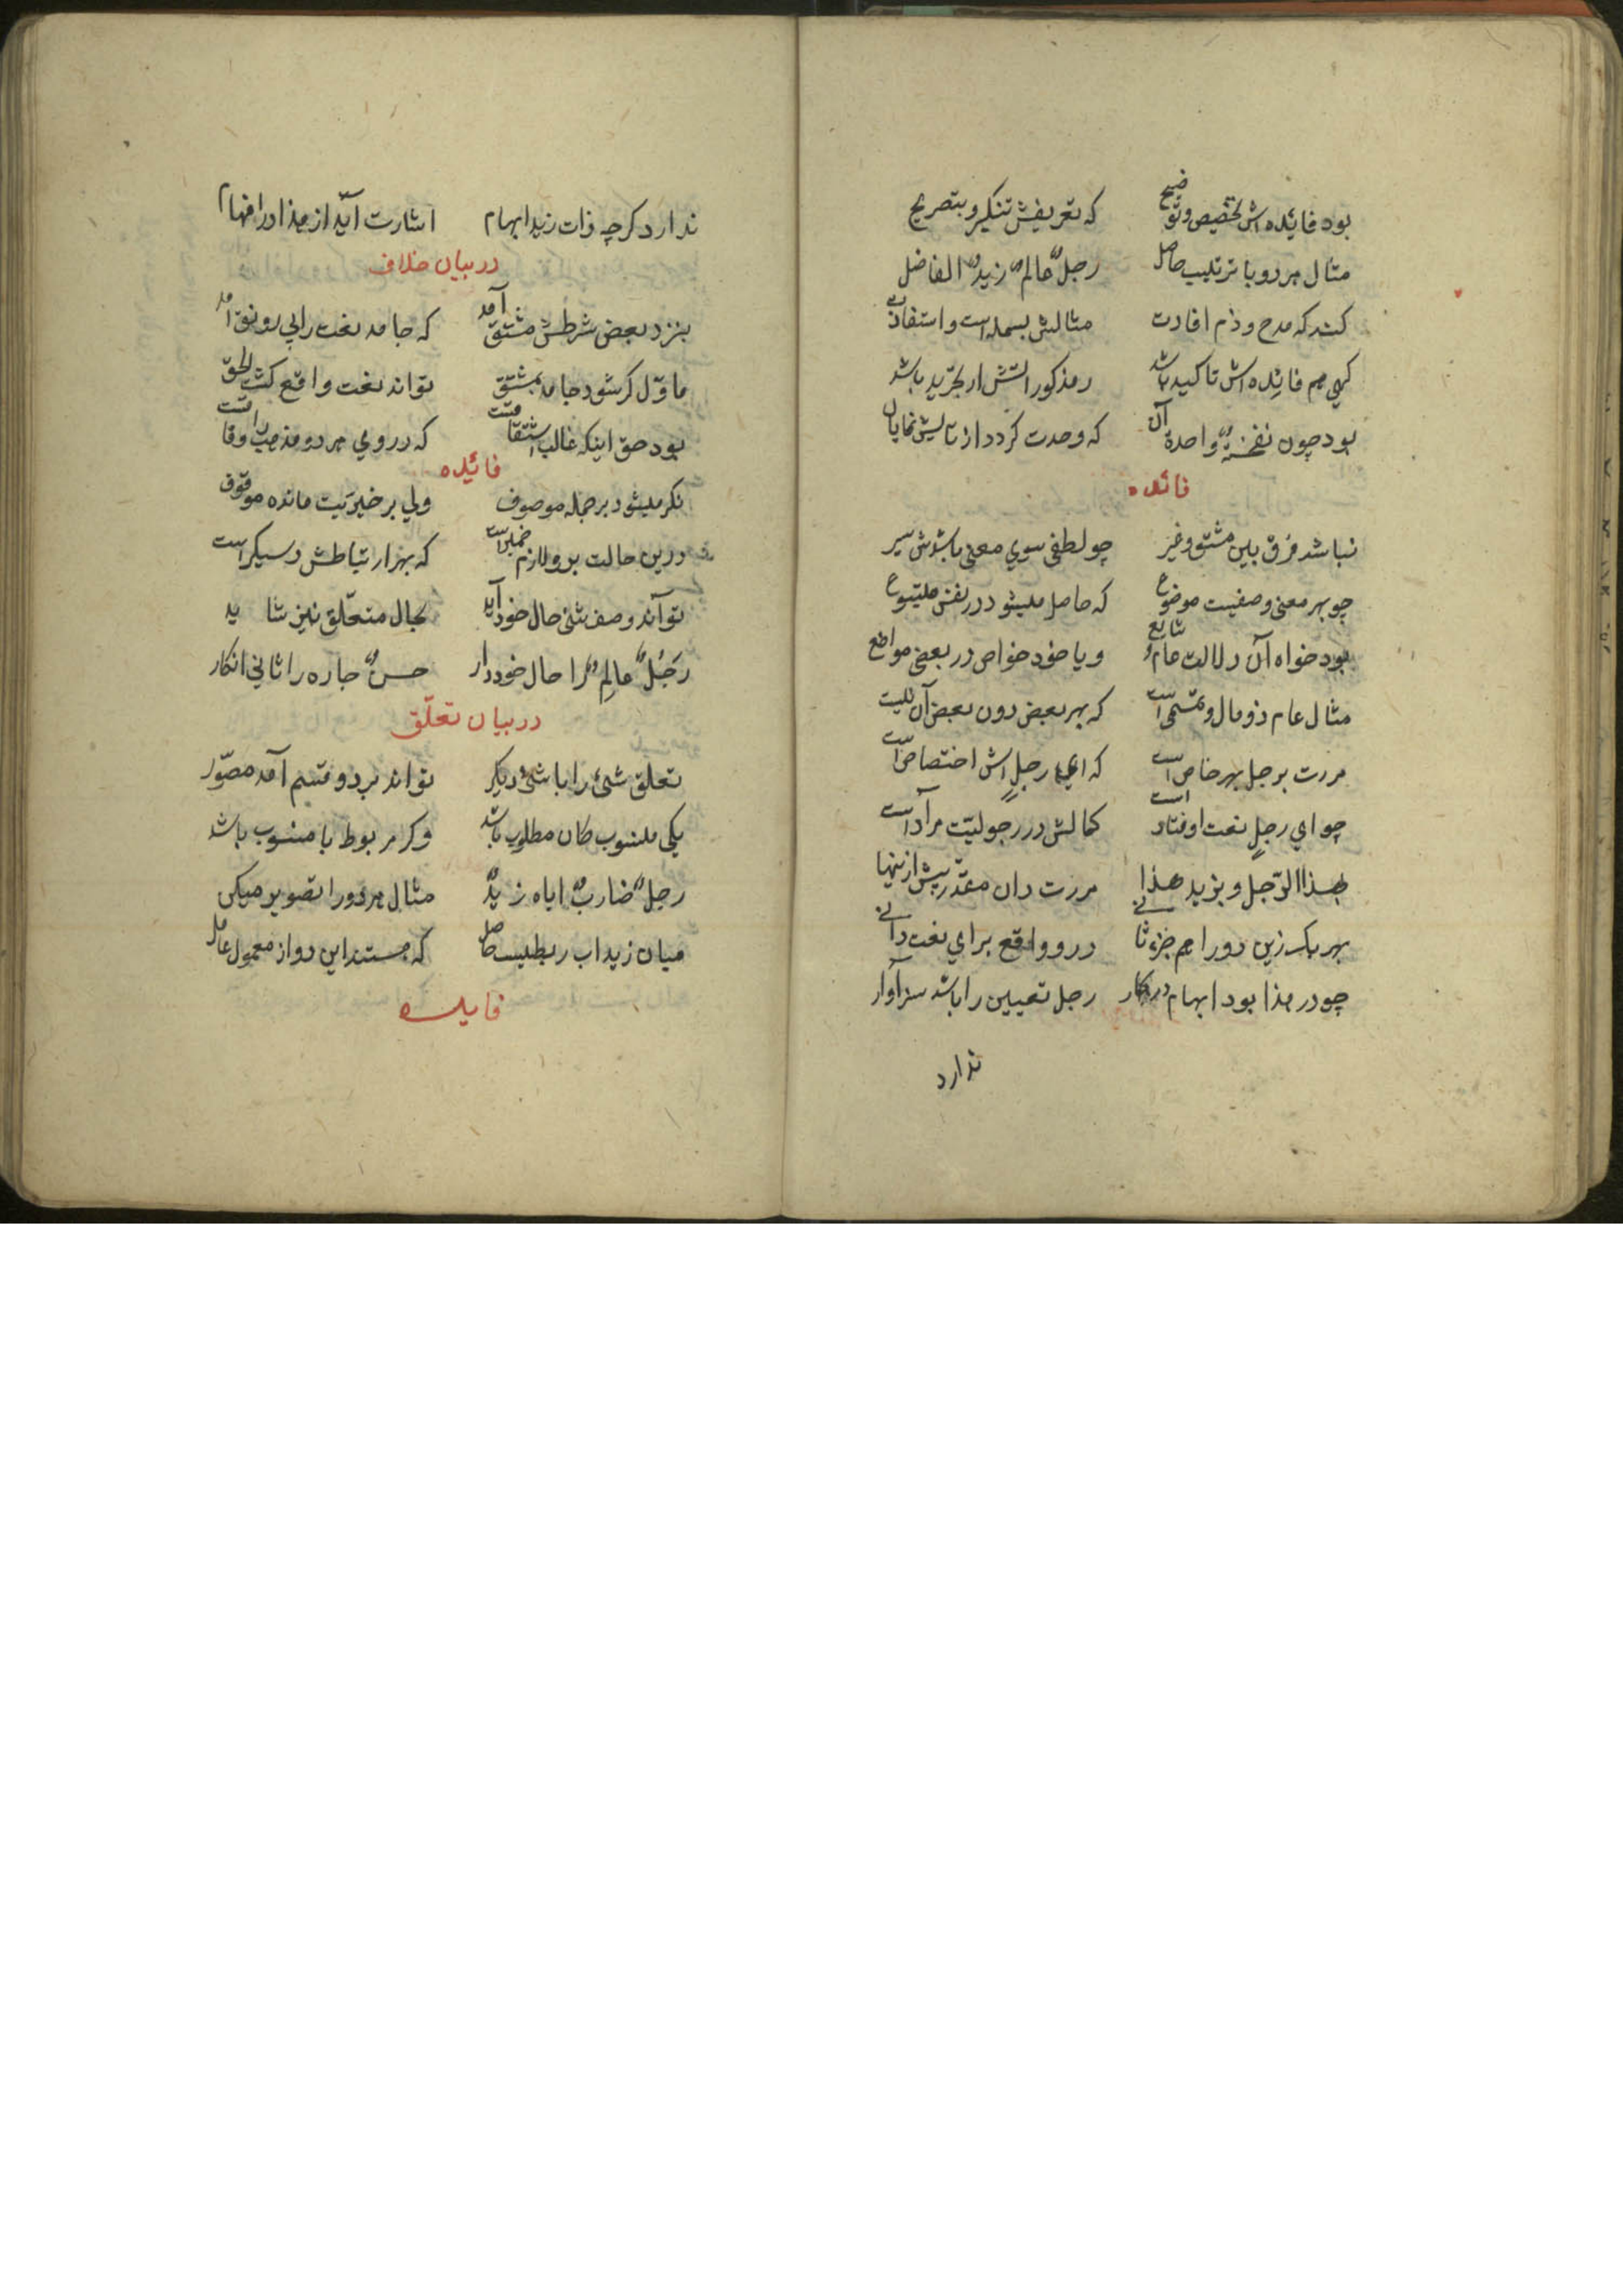 بود فائده اش تخصیص و توضیح که تعریفش تنکیر و بتصریح
مثال هر دو با ترتیب حاصل رجلٌ عالمٌ زیدٌ الفاضل
کند که مدح و ذم افادت مثالش بسمله است و استفادت
کهی هم فائده اش تاکید باشد مذکور باشد
بود چون نفخةٌ واحدة آن که وحدت کردد از تایش نمایان
فائده
نباشد فرق بین مشتق و غیر چو لطفی سوی معنی باشدش سیر
چو بهر معنی وصفیت موضوع که حاصل میشود در نفس متبوع
بود خواه آن دلالت عام و شایع و یا خود خاص در بعضی مواضع
مثال عام ذو مال و تمیمی است که بهر بعض دون بعض آن نیست
مررت برجل بهر خاص است که ای رجلٍ اش اختصاص است
چو ای رجلٍ نعت اوفتاد است کمالش در رجولیّت مراد است
بهذا الرّجل و بزید هذا مررت دان مقدّر پیش ازینها
بهر یک زین دو را هم جزء ثانی درو واقع برای نعت دانی
چو در هذا بود ابهام درکار رجل تعیین را باشد سزاوار
ندارد
ندارد کرچه ذات زید ابهام اشارت آید از هذا در افهام
در بیان خلاف
بنزد بعض شرطش مشتق آمد که جامد نعت را بی رونق آمد
ماوّل کر شود جامد بمشتق تواند نعت واقع کشت الحق
بود حق اینکه غالب اشتقاقست که در وی هر دو مذهب را وفاقست
فائده
نکر میشود بر جمله موصوف ولی بر خبریّت مانده موقوف
درین حالت برو لازم ضمیر است که بهر ارتباطش دستکیر است
تواند وصف شئ حال خود آید بحال متعلّق نیز شاید
رَجُلٌ عالِمٌ را حال خود دار حسنٌ جاره را ثانی انکار
در بیان تعلّق
تعلق شئ را با شئ دیکر تواند بر دو قسم آمد مصوّر
یکی منسوب کان مطلوب باشد وکر مربوط با منسوب باشد
رجلٌ ضاربٌ اباه زیدٌ مثال هر دو را تصویر میکن
میان زید اب ربطیست حاصل که هستند این دو از معمول عامل
فایده